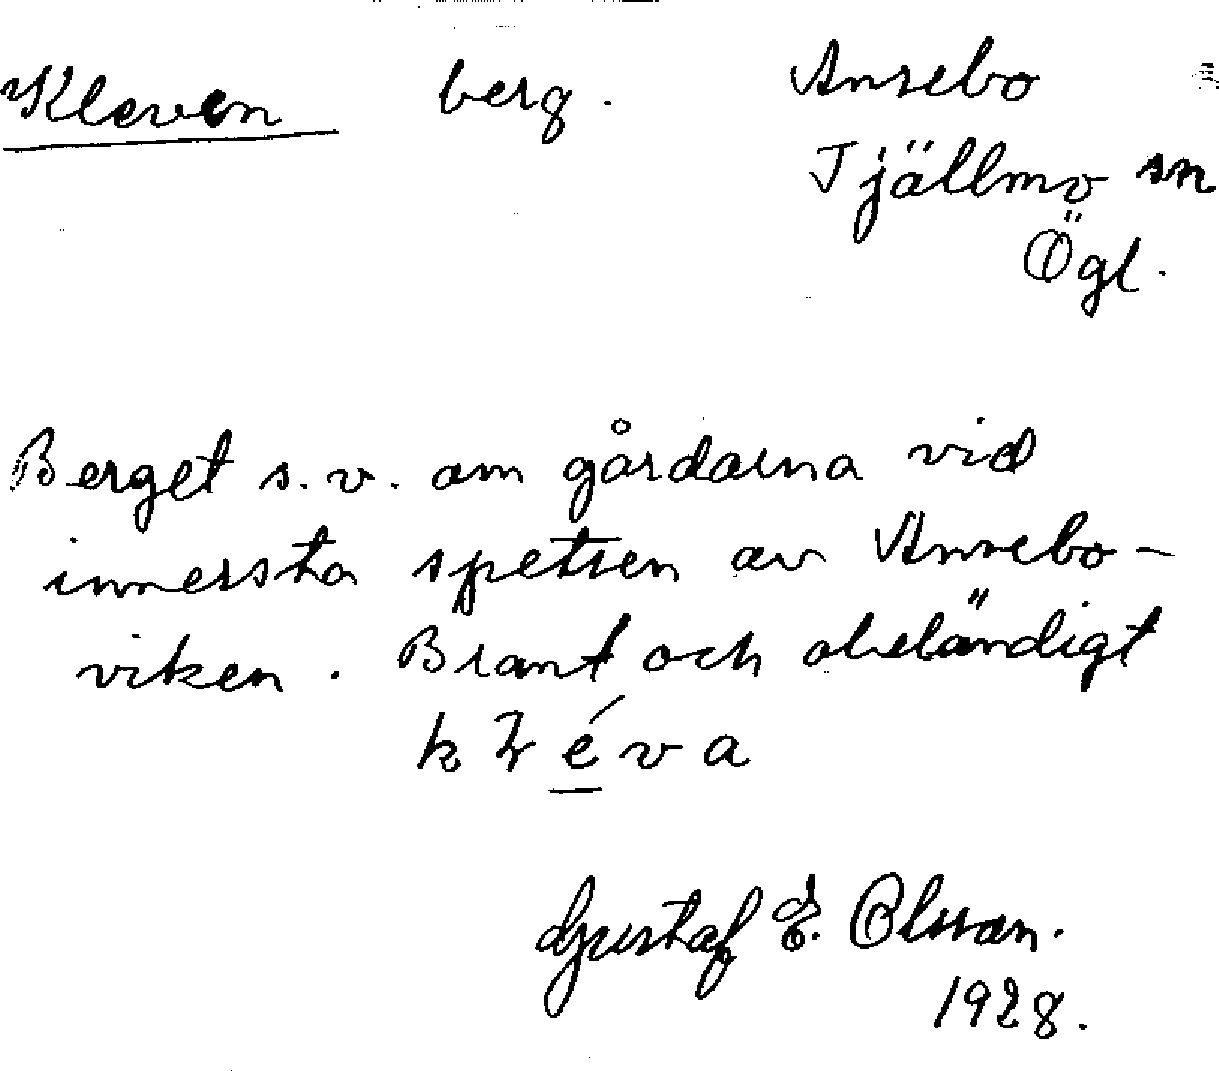 Kleven berg. Ansebo
Tjällmo sn
Ögl.
Berget s.v. om gårdarna vid
innersta spetsen av Ansebo-
viken. Brant och obeländigt
Gustaf E. Olsson.
1928.